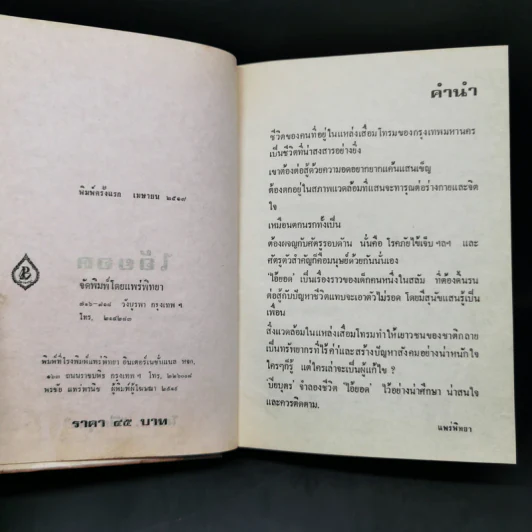 พิมพ์ครั้งแรก เมษายน ๒๕๑๗
ไอ้ยอด
จัดพิมพ์โดยแพร่พิทยา
๗๑๖-๗๑๘ วังบูรพา กรุงเทพ ฯ
โทร.
พิมพ์ที่โรงพิมพ์แพร่พิทยา อินเตอร์เนชั่นแนล
ถนนราชบพิธ กรุงเทพ ฯ โทร.
พรชัย แพร่พานิช ผู้พิมพ์ผู้โฆษณา ๒๕๑๗
ราคา ๔๕ บาท
คำนำ
ชีวิตของคนที่อยู่ในแหล่งเสื่อมโทรมของกรุงเทพมหานคร
เป็นชีวิตที่น่าสงสารอย่างยิ่ง
เขาต้องต่อสู้ด้วยความอดอยากยากแค้นแสนเข็ญ
ต้องตกอยู่ในสภาพแวดล้อมที่แสนจะทารุณต่อร่างกายและจิต
ใจ
เหมือนตกนรกทั้งเป็น
ต้องผจญกับศัตรูรอบด้าน นั่นคือ โรคภัยไข้เจ็บ ฯลฯ และ
ศัตรูตัวสำคัญก็คือมนุษย์ด้วยกันนั่นเอง
'ไอ้ยอด' เป็นเรื่องราวของเด็กคนหนึ่งในสลัม ที่ต้องดิ้นรน
ต่อสู้กับปัญหาชีวิตแทบจะเอาตัวไม่รอด โดยมีสุนัขแสนรู้เป็น
เพื่อน
สิ่งแวดล้อมในแหล่งเสื่อมโทรมทำให้เยาวชนของชาติกลาย
เป็นทรัพยากรที่ไร้ค่าและสร้างปัญหาสังคมอย่างน่าหนักใจ
ใครๆก็รู้ แต่ใครเล่าจะเป็นผู้แก้ไข ?
'บ๊อบุตร' จำลองชีวิต 'ไอ้ยอด' ไว้อย่างน่าศึกษา น่าสนใจ
และควรติดตาม.
แพร่พิทยา